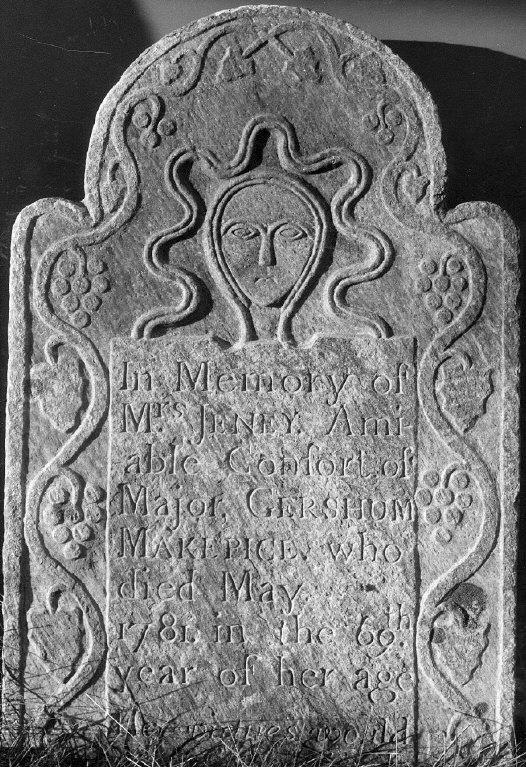 In Memory of
Mrs JENEY. Ami-
able Conſort of
Major. GERSHOM
MAKEPICE. who
died May.
1781. in the 69th
year of her age
Her virtues would